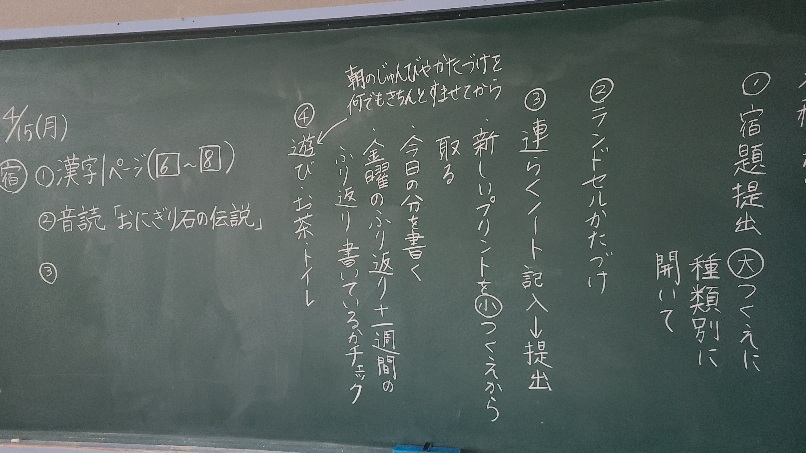 ① 宿題提出 ㊅つくえに
種類別に
開いて
② ランドセルかたづけ
③ 連らくノート記入→提出
・新しいプリントを㊙つくえから
取る
・今日の分を書く
・金曜のふり返り+一週間の
ふり返り書いているかチェック
朝のじゅんびやかたづけを
何でもきちんとすませてから
④ 遊び・お茶・トイレ
4/15(月)
宿 ①漢字1ページ(6~8)
②音読「おにぎり石の伝説」
③